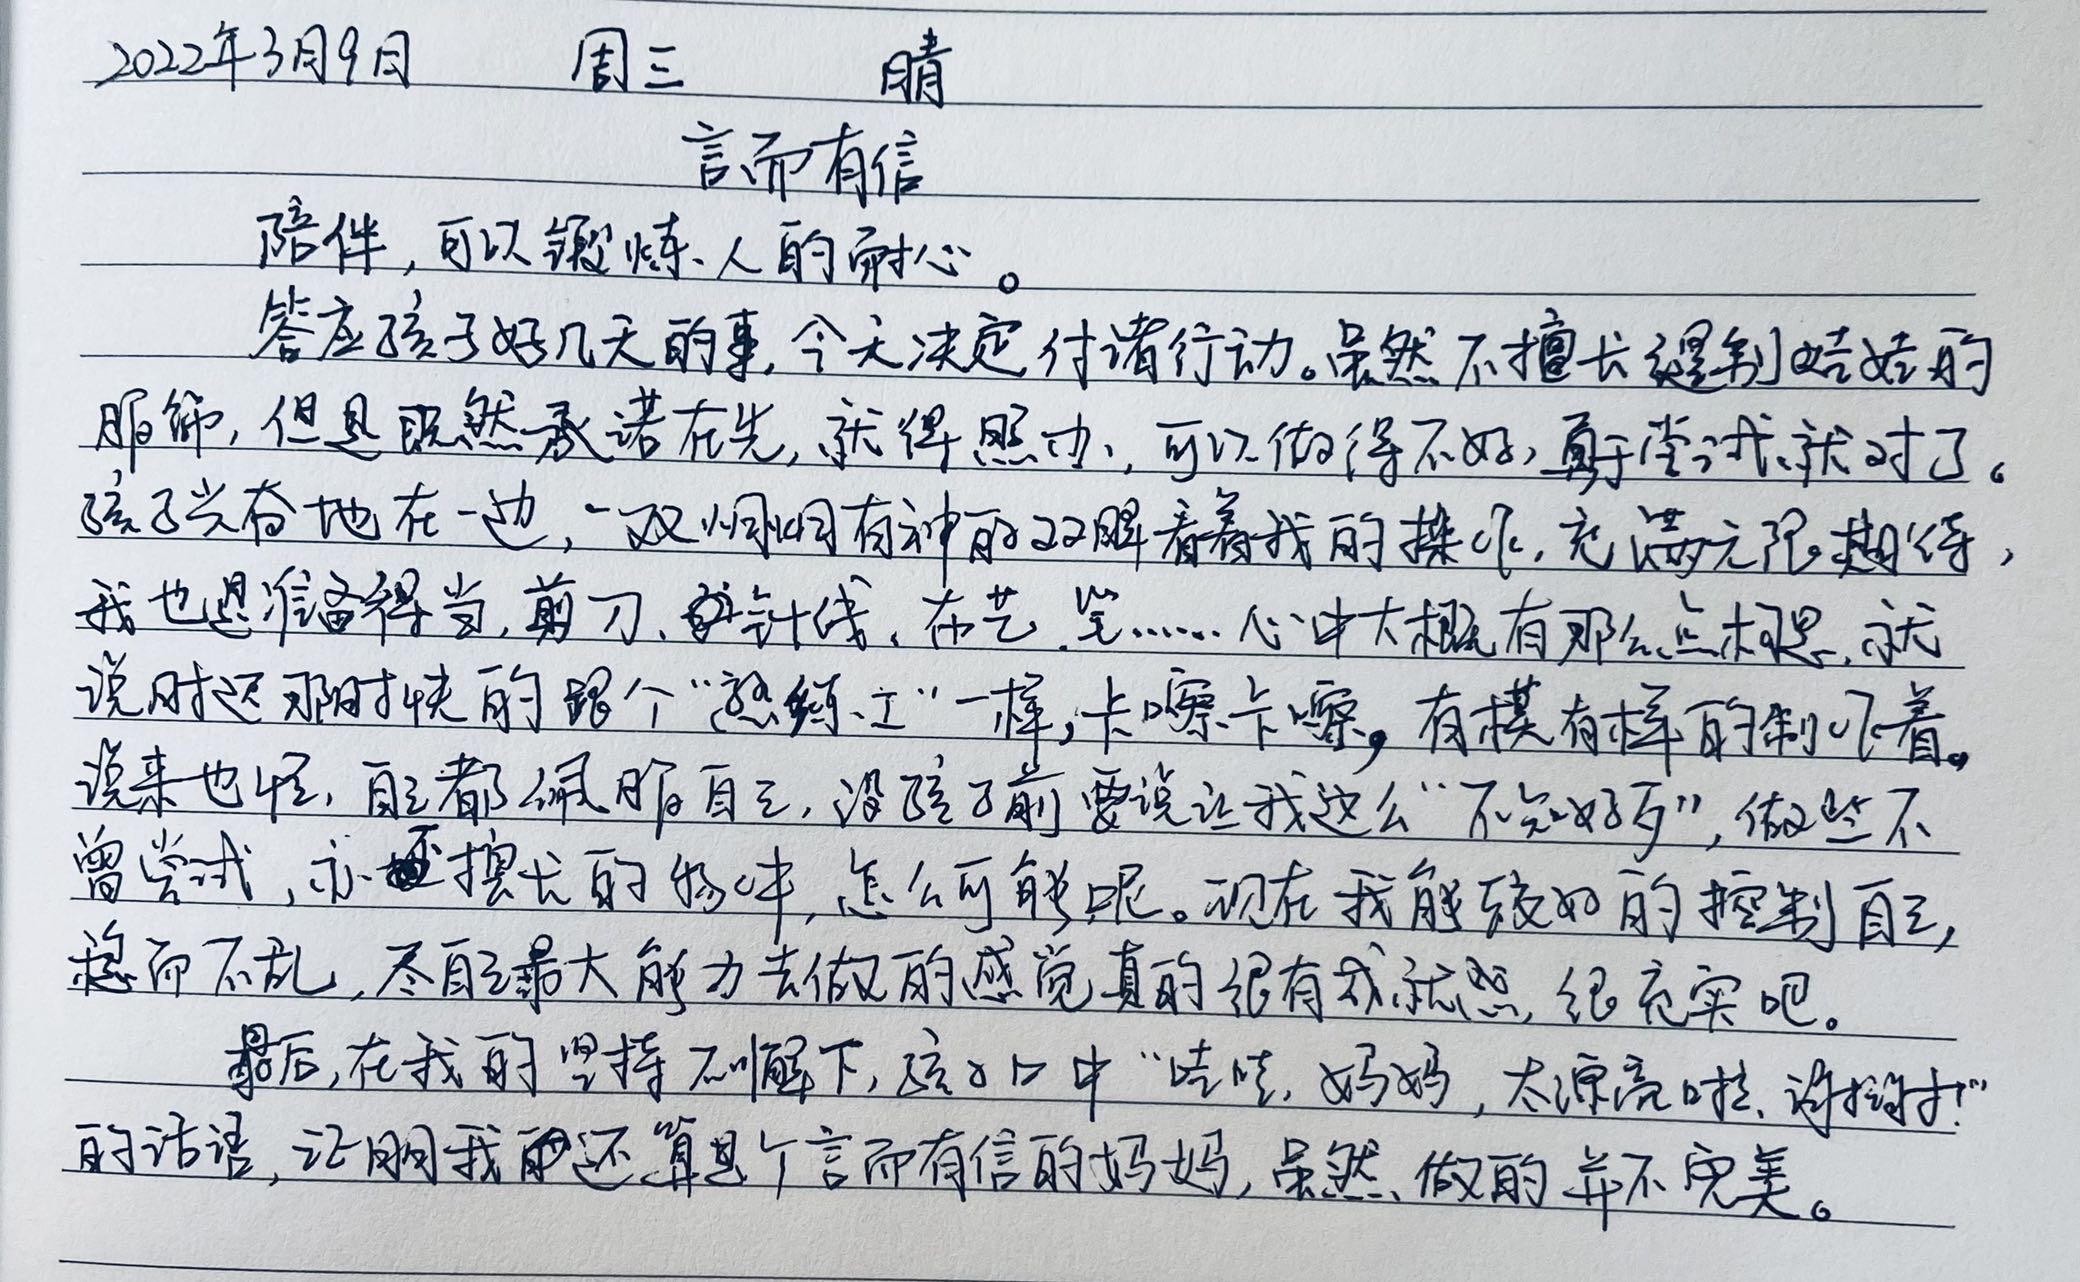 2022年3月9日 周三 晴
言而有信
陪伴,可以锻炼人的耐心。
答应孩子好几天的事,今天决定付诸行动。虽然不擅长缝制娃娃的
服饰,但是既然承诺在先,就得照办,可以做得不好,勇于尝试就对了。
孩子兴奋地在一边,一双炯炯有神的双眸看着我的操作,充满无限期待,
我也是准备得当,剪刀、针线、布艺、笔……心中大概有那么点构思,就
说时迟那时快的跟个“熟练工”一样,卡嚓卡嚓,有模有样的制作着。
说来也怪,自己都佩服自己,没孩子前要说让我这么“不知好歹”,做些不
曾尝试,亦擅长的物件,怎么可能呢。现在我能较好的控制自己,
稳而不乱,尽自己最大能力去做的感觉真的很有成就感,很充实吧。
最后,在我的坚持不懈下,孩子口中“哇哇,妈妈,太漂亮啦、谢谢!”
的话语,证明我还算是个言而有信的妈妈,虽然做的并不完美。